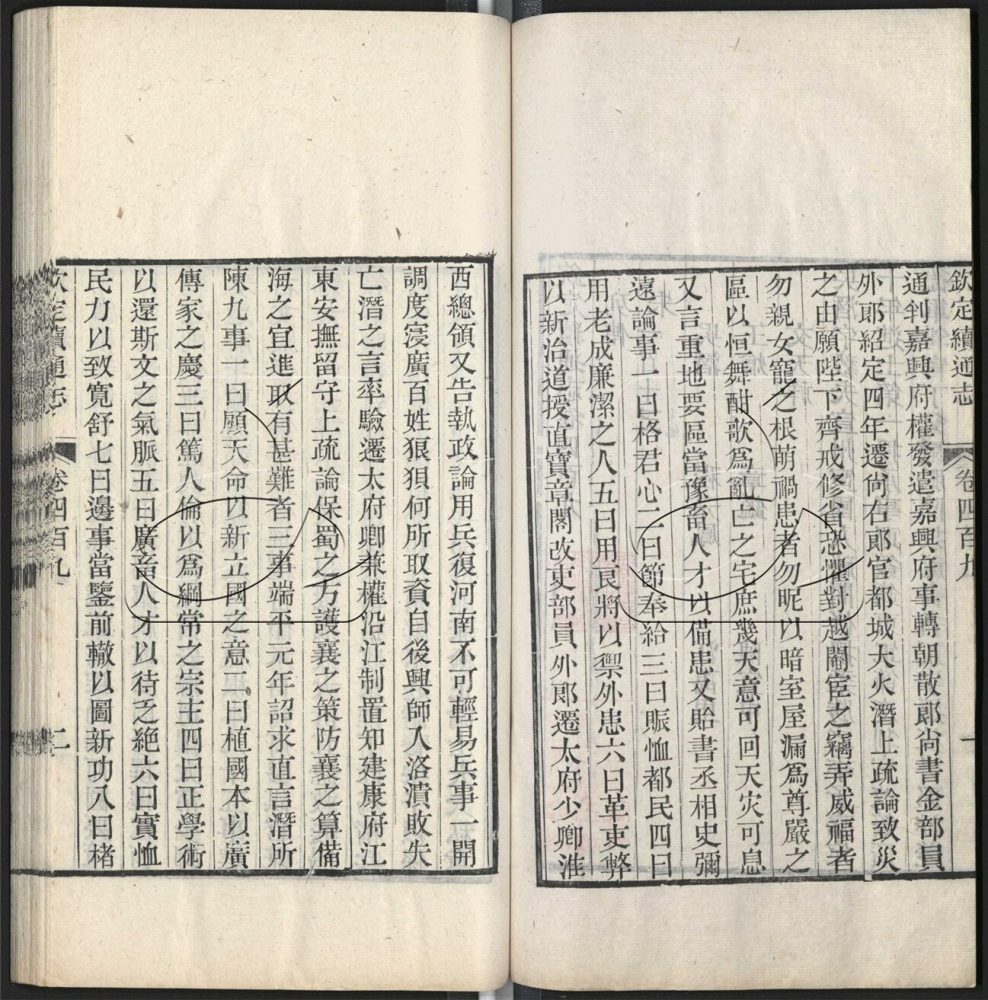 欽定續通志 卷四百九 一
通判嘉興府權發遣嘉興府事轉朝散郎尚書金部員
外郎紹定四年遷尚右郎官都城大火潛上疏論致災
之由願陛下齊戒修省恐懼對越閹宦之竊弄威福者
勿親女寵之根萌禍患者勿昵以暗室屋漏爲尊嚴之
區以恒舞酣歌爲亂亡之宅庶幾天意可回天灾可息
又言重地要區當豫畜人才以備患又貽書丞相史彌
遠論事一曰格君心二曰節奉給三曰賑恤都民四曰
用老成廉潔之人五曰用良將以禦外患六曰革吏弊
以新治道授直寶章閣改吏部員外郎遷太府少卿淮
西總領又告執政論用兵復河南不可輕易兵事一開
調度寖廣百姓狼狽何所取資自後興師入洛潰敗失
亡潛之言率驗遷太府卿兼權沿江制置知建康府江
東安撫留守上疏論保蜀之方護襄之策防襄之算備
海之宜進取有甚難者三事端平元年詔求直言潛所
陳九事一曰顧天命以新立國之意二曰植國本以廣
傳家之慶三曰篤人倫以爲綱常之宗主四曰正學術
以還斯文之氣脈五曰廣畜人才以待乏絶六曰實恤
民力以致寬舒七曰邊事當鑒前轍以圖新功八曰楮
欽定續通志 卷四百九 二